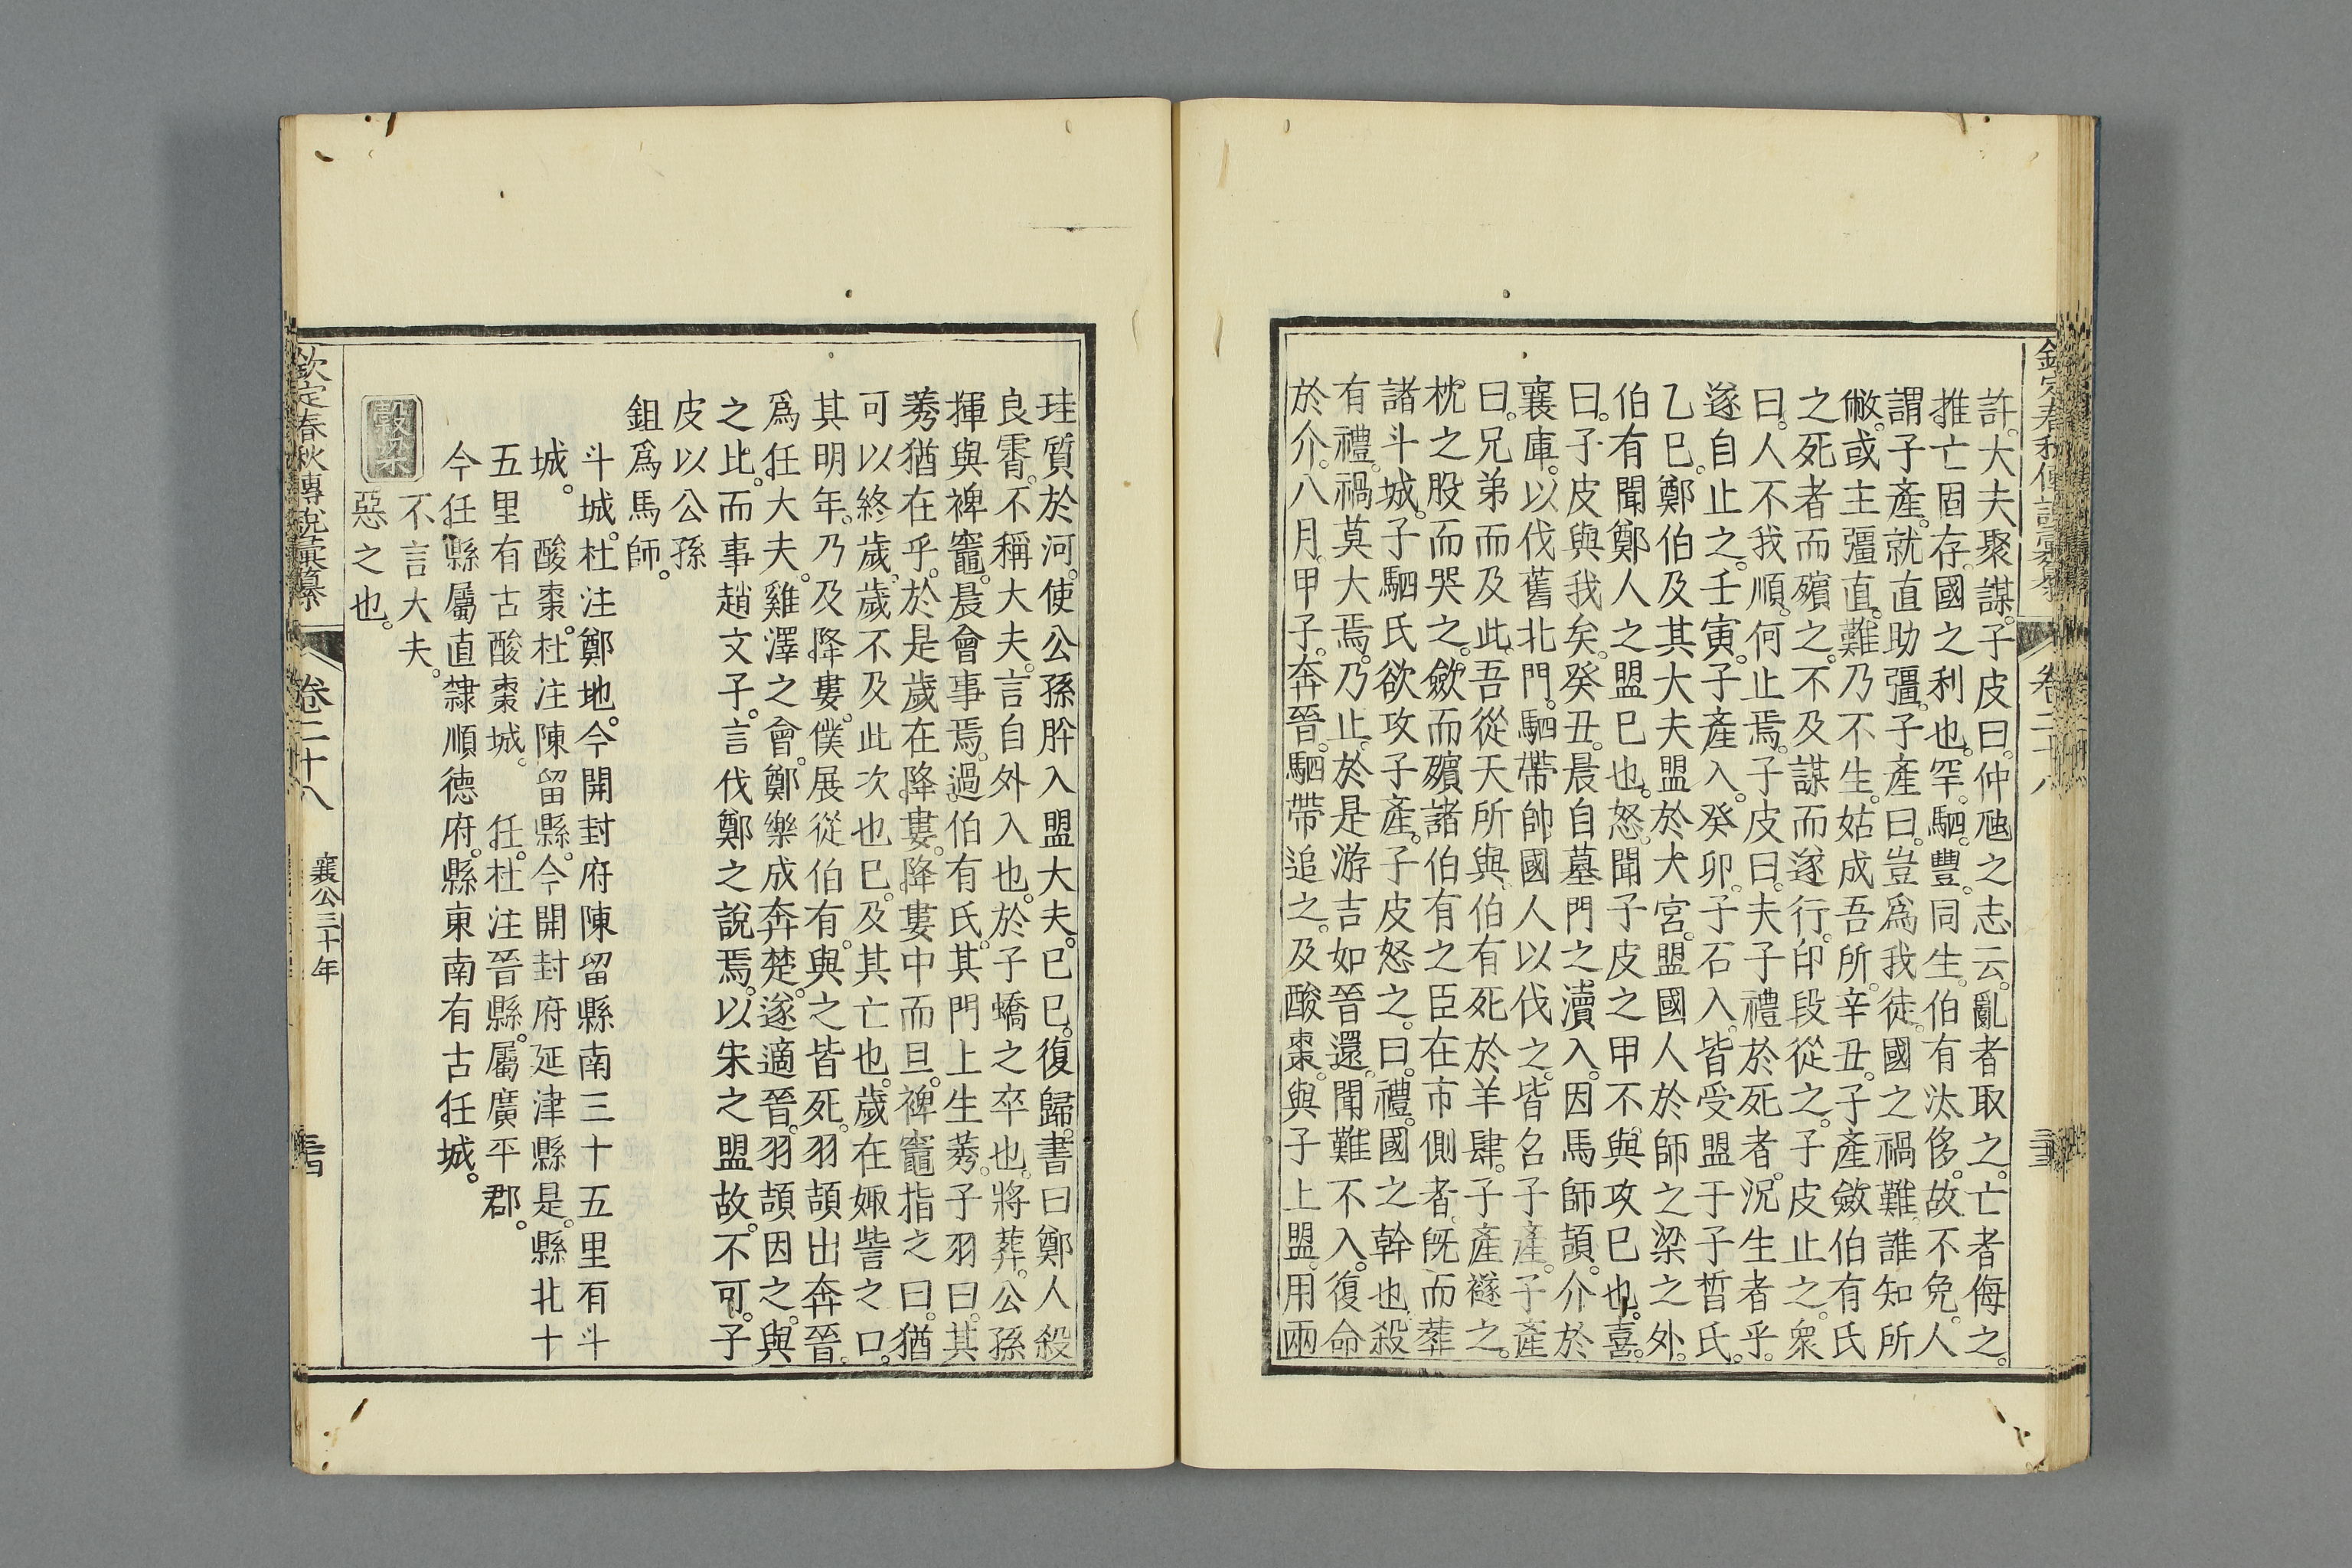 許。大夫聚謀。子皮曰。仲虺之志云。亂者取之。亡者侮之。
推亡固存。國之利也。罕。駟。豐。同生。伯有汰侈。故不免。人
謂子產。就直助彊。子產曰。豈爲我徒。國之禍難。誰知所
敝。或主彊直。難乃不生。姑成吾所。辛丑。子產斂伯有氏
之死者而殯之。不及謀而遂行。印段從之。子皮止之。衆
曰。人不我順。何止焉。子皮曰。夫子禮於死者。況生者乎。
遂自止之。壬寅。子產入。癸卯。子石入。皆受盟于子晳氏。
乙巳。鄭伯及其大夫盟於大宮。盟國人於師之梁之外。
伯有聞鄭人之盟巳也。怒。聞子皮之甲不與攻巳也。喜。
曰。子皮與我矣。癸丑。晨自墓門之瀆入。因馬師頡。介於
襄庫。以伐舊北門。駟帶帥國人以伐之。皆召子產。子產
曰。兄弟而及此。吾從天所與。伯有死於羊肆。子產襚之。
枕之股而哭之。斂而殯諸伯有之臣在市側者。旣而葬
諸斗城。子駟氏欲攻子產。子皮怒之。曰。禮。國之幹也。殺
有禮。禍莫大焉。乃止。於是游吉如晉還。聞難不入。復命
於介。八月。甲子。奔晉。駟帶追之。及酸棗。與子上盟。用兩
卷二十八
珪質於河。使公孫肸入盟大夫。巳巳。復歸。書曰鄭人殺
良霄。不稱大夫。言自外入也。於子蟜之卒也。將葬。公孫
揮與裨竈。晨會事焉。過伯有氏。其門上生莠。子羽曰。其
莠猶在乎。於是歲在降婁。降婁中而旦。裨竈指之曰。猶
可以終歲。歲不及此次也巳。及其亡也。歲在娵訾之口。
其明年。乃及降婁。僕展從伯有。與之皆死。羽頡出奔晉。
爲任大夫。雞澤之會。鄭樂成奔楚。遂適晉。羽頡因之。與
之比。而事趙文子。言伐鄭之說焉。以宋之盟故。不可。子
皮以公孫
鉏爲馬師。
斗城。杜注鄭地。今開封府陳留縣南三十五里有斗
城。酸棗。杜注陳留縣。今開封府延津縣是。縣北十
五里有古酸棗城。任。杜注晉縣。屬廣平郡。
今任縣屬直隸順德府。縣東南有古任城。
穀梁
不言大夫。
惡之也。
欽定春秋傳說彙纂
卷二十八
襄公三十年